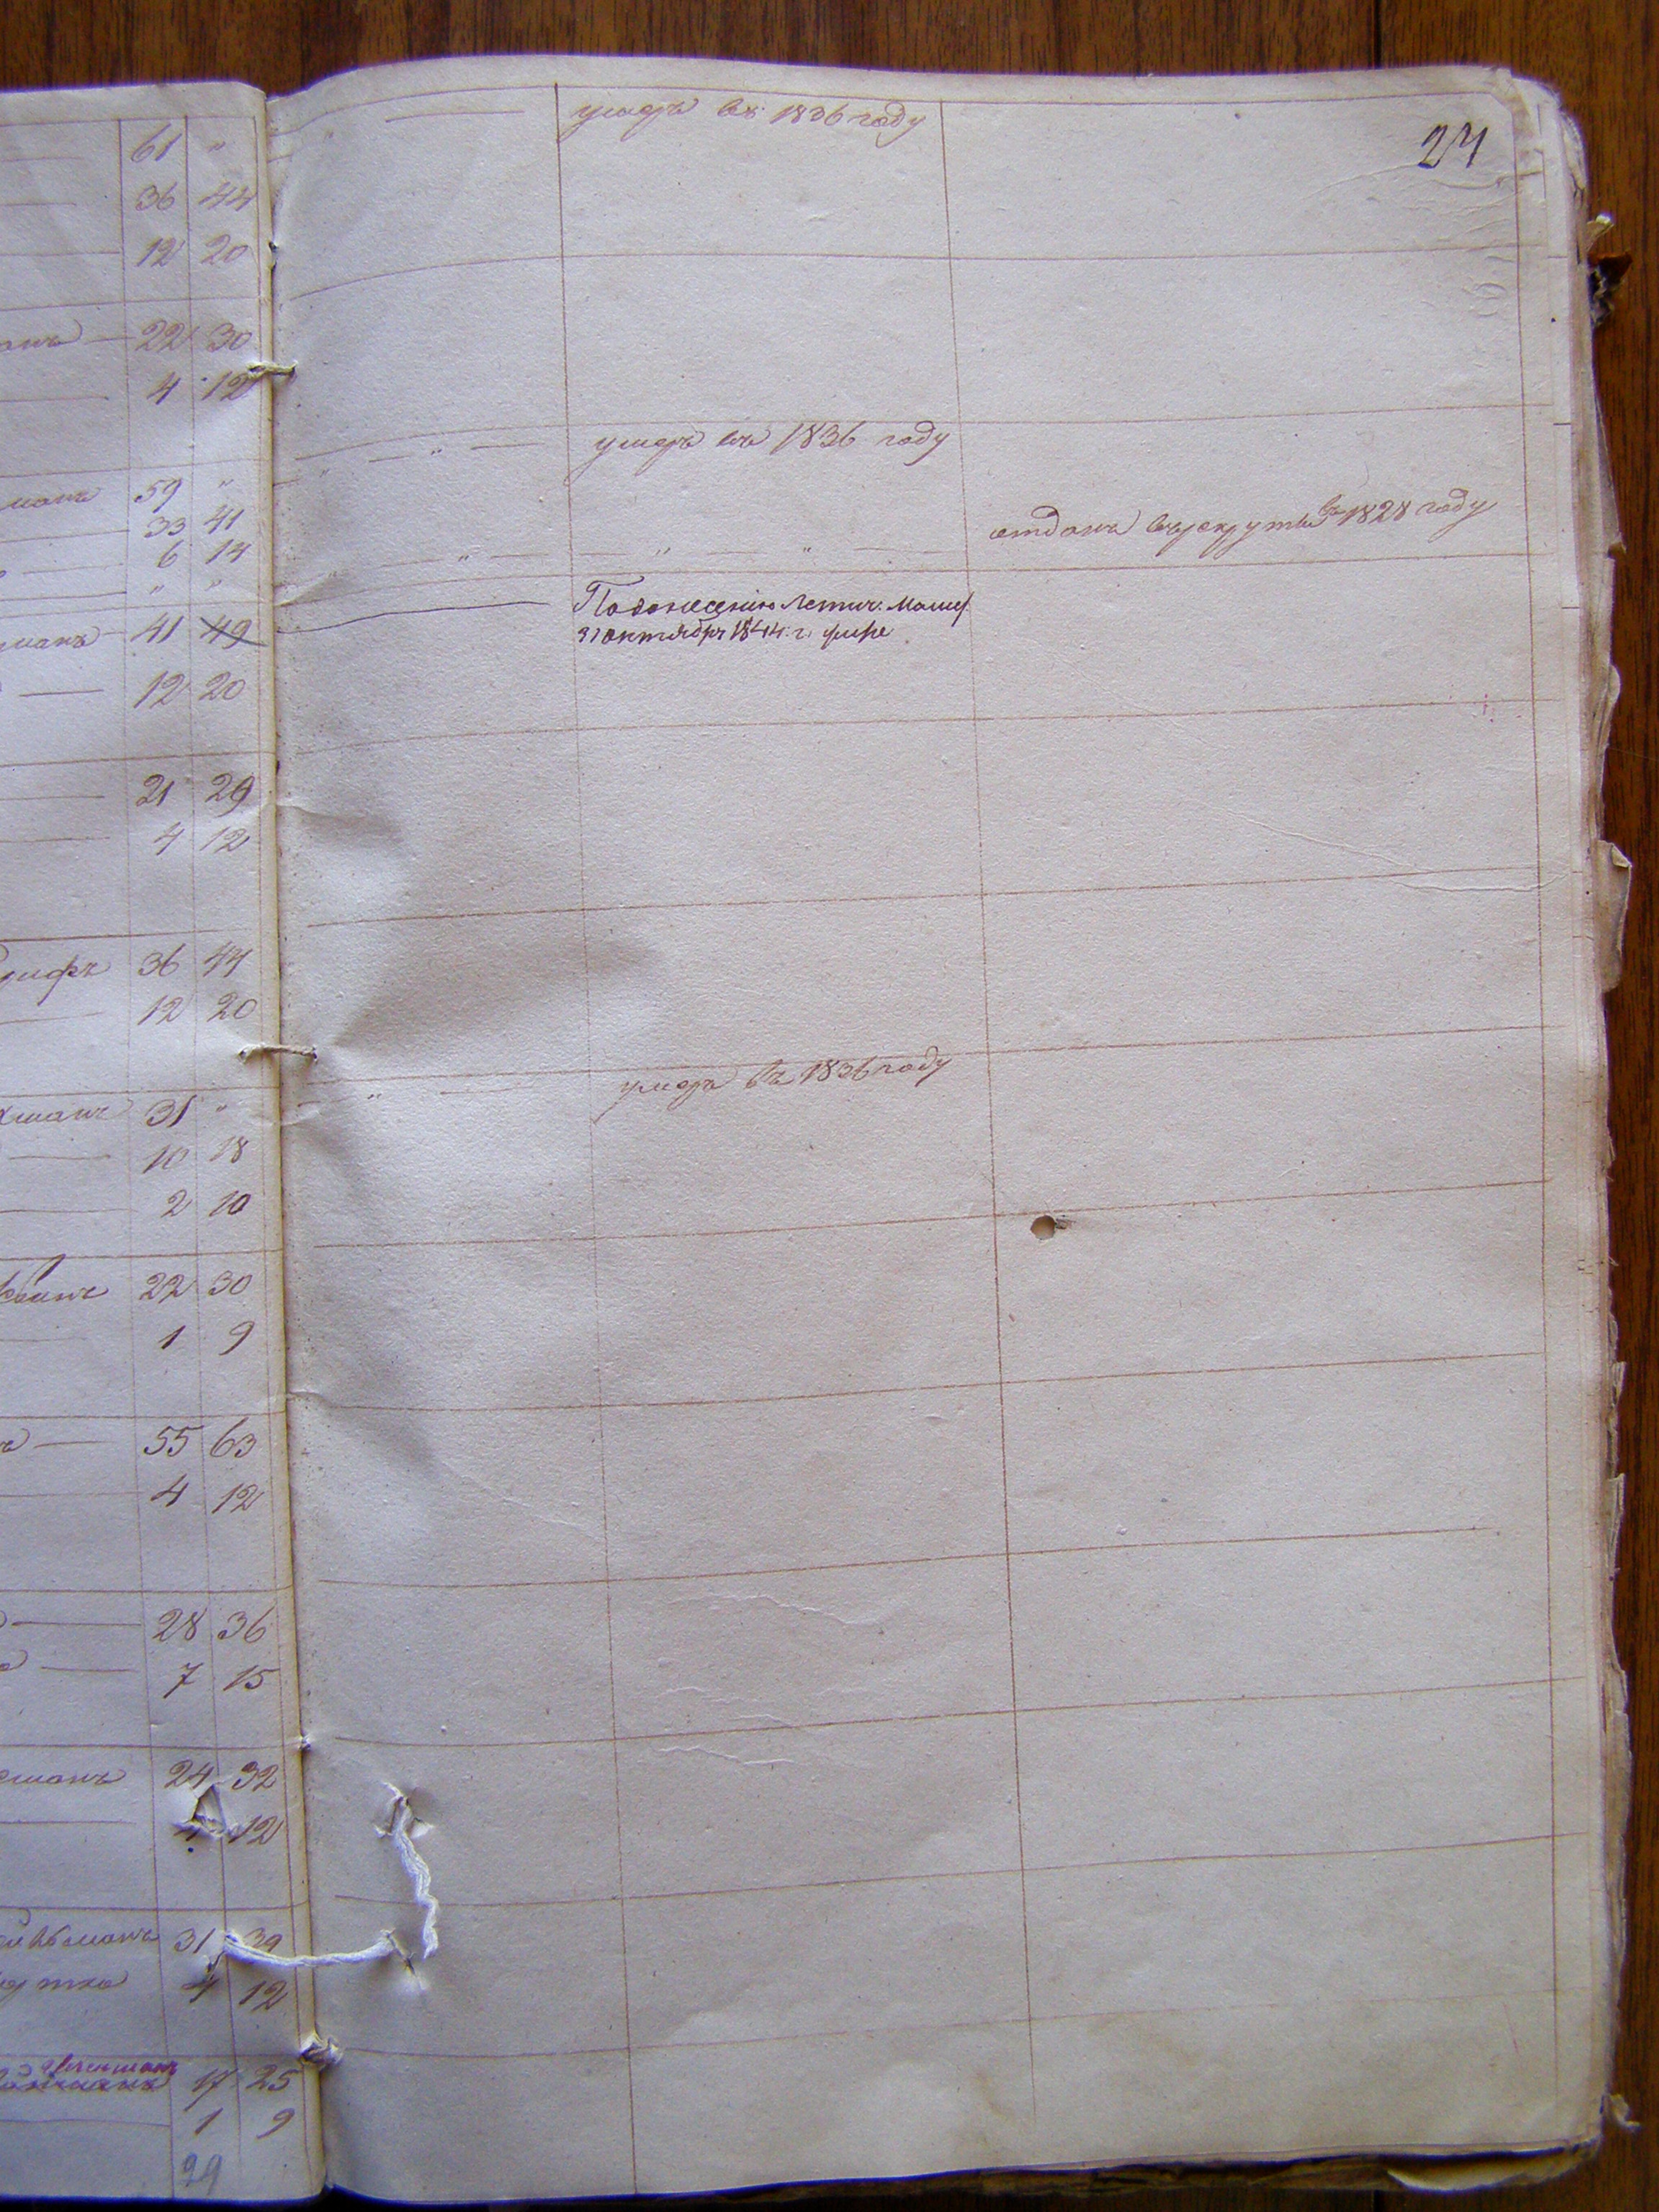 умеръ въ 1836 году
24
61 "
36 44
12 20
22 30
4 12
умеръ въ 1836 году
манъ 59 "
33 41
отданъ въ рекруты въ 1828 году
6 14
" "
По донесению Летич.
манъ 41 49
31 октября 1844 г.
12 20
21 29
4 12
36 44
12 20
умеръ въ 1836 году
манъ 31 "
10 18
2 10
22 30
1 9
55 63
4 12
28 36
7 15
манъ 24 32
4 12
манъ 31 39
4 12
17 25
1 9
29